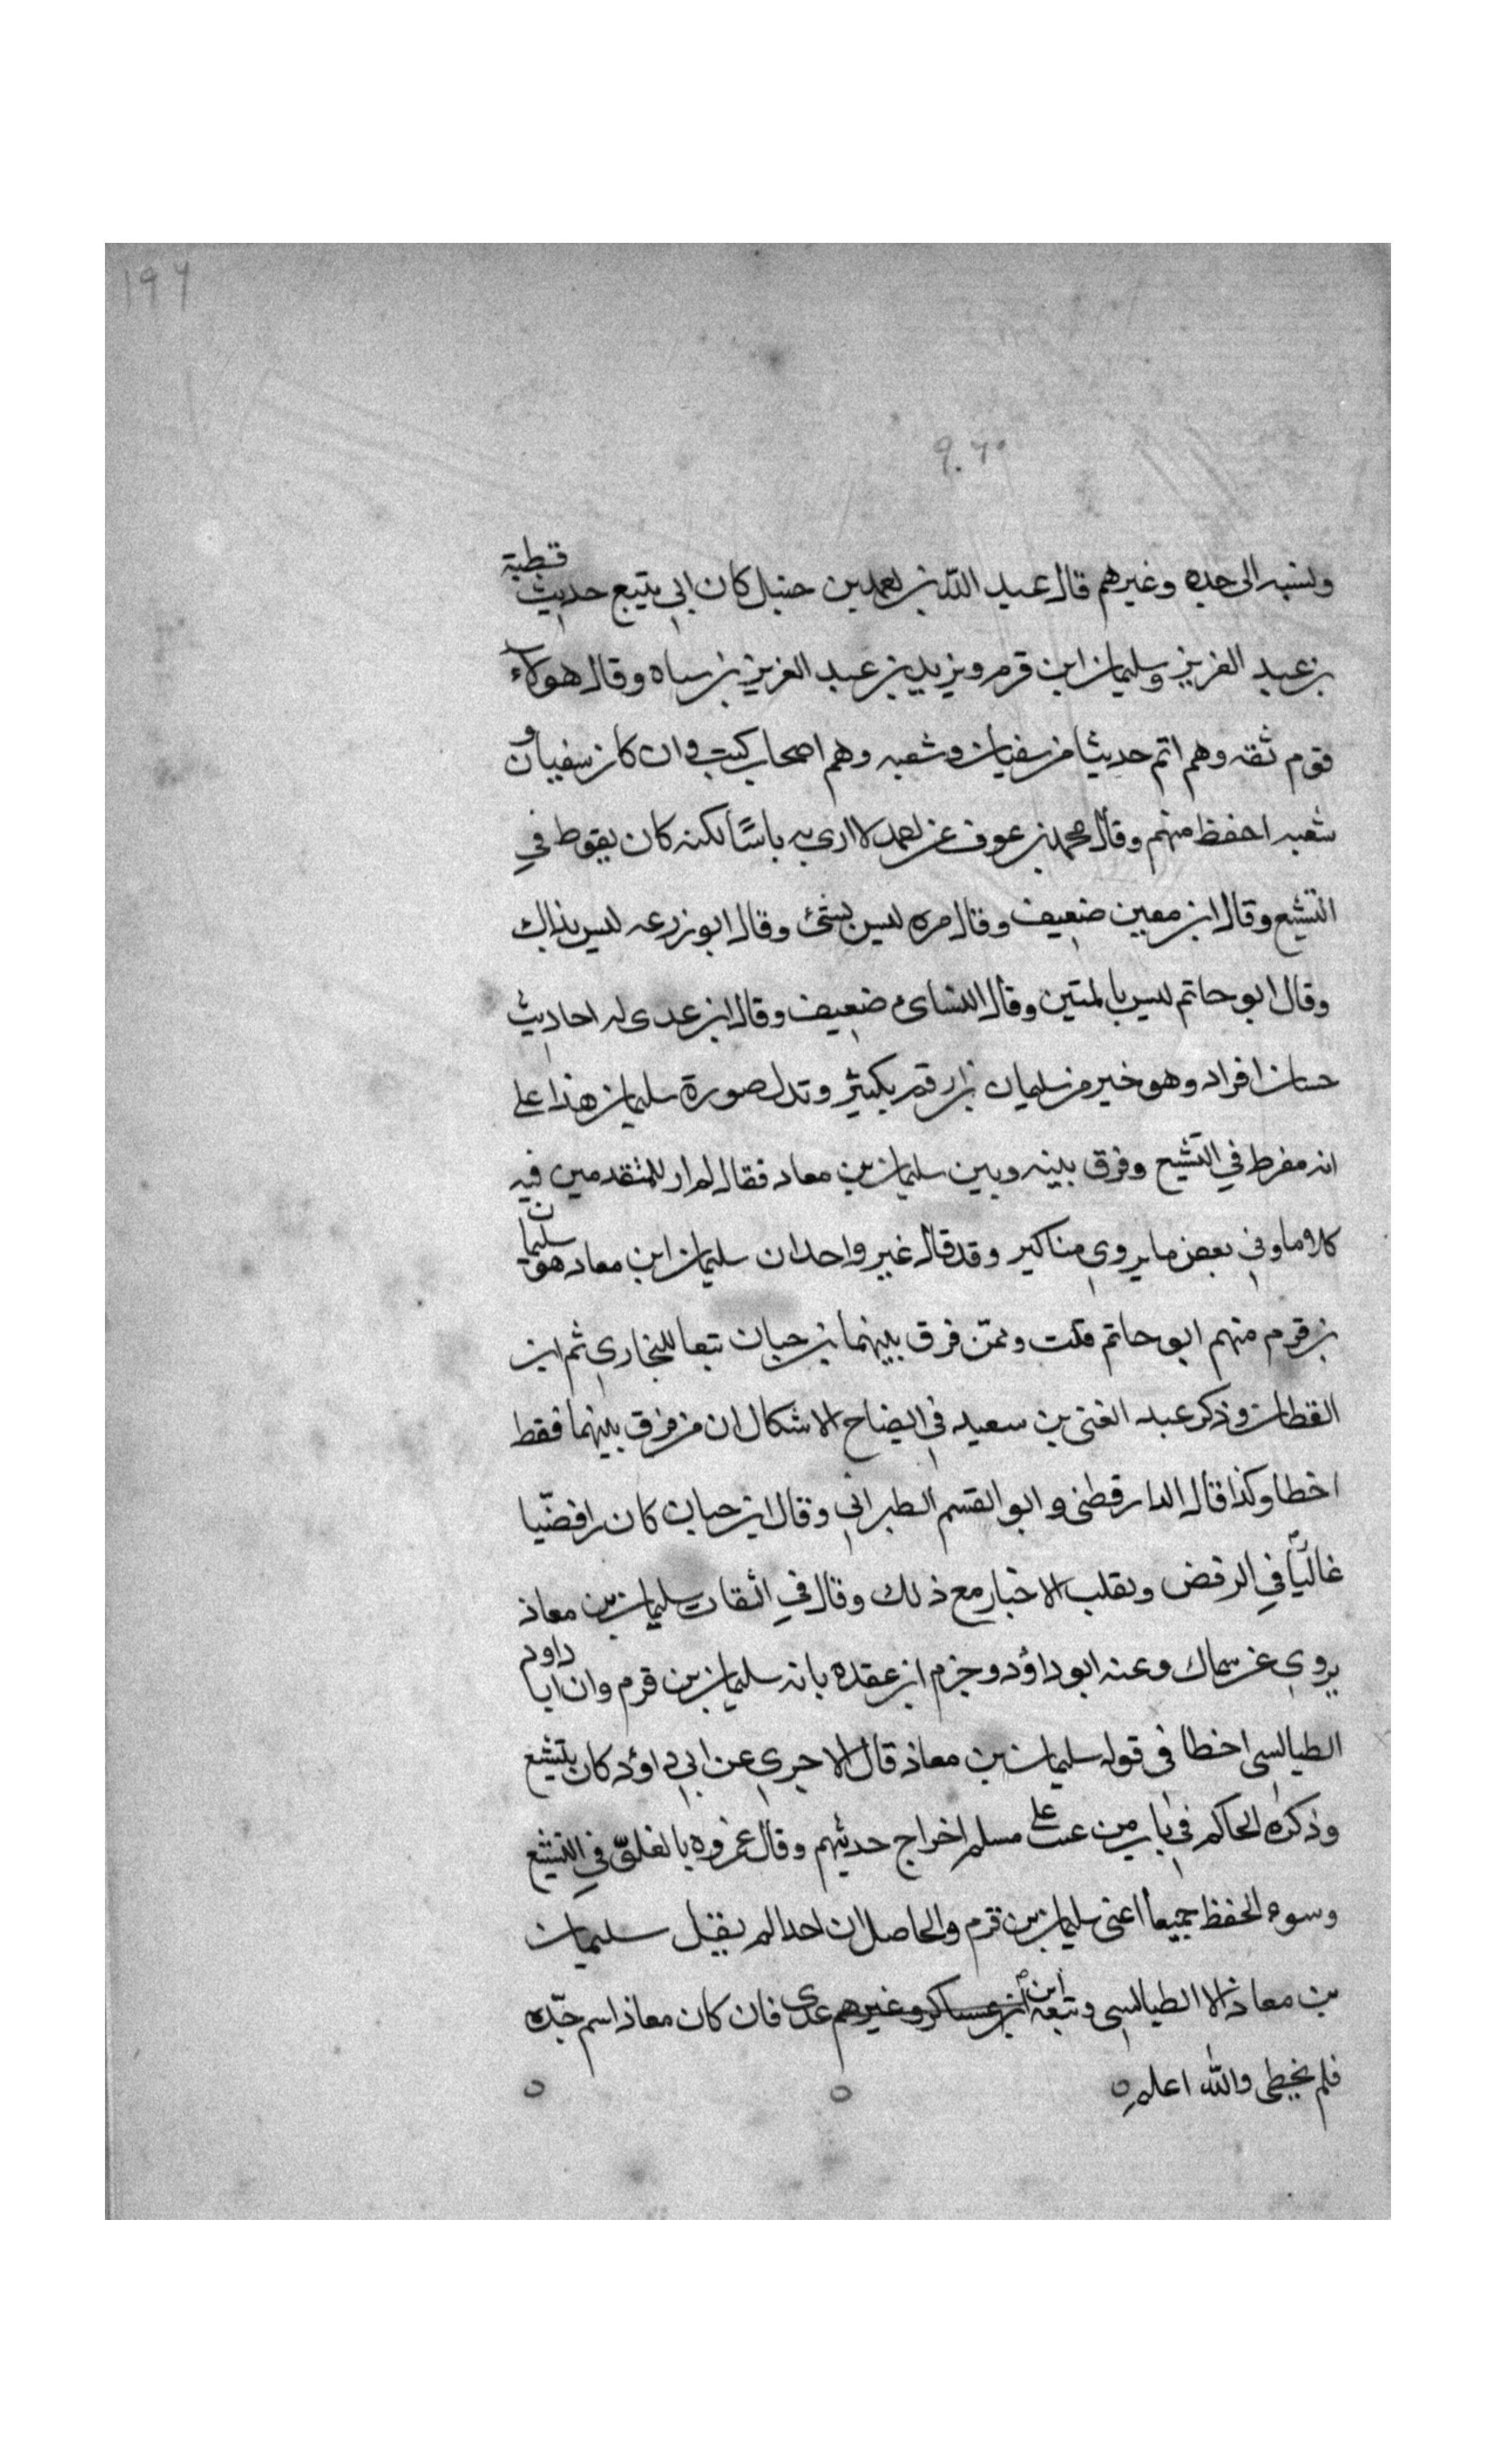 ١٩٦
٩٠٦٠
ونسبه الى جده وغيرهم قال عبد الله بن احمد بن حنبل كان ابي يتتبع حديث قطبة
بن عبد العزيز وسليمان ابن قرم ويزيد بن عبد العزيز بن سياه وقال هولاء
قوم ثقه وهم اتم حديثا من سفيان وشعبه وهم اصحاب كتب وان كان سفيان و
شعبه احفظ منهم وقال محمد بن عوف عن احمد لا ارى به باسًا لكنه كان يفرط في
التشيع وقال ابن معين ضعيف وقال مره ليس بشئ وقال ابو زرعه ليس بذاك
وقال ابو حاتم ليس بالمتين وقال النسائي ضعيف وقال ابن عدى له احاديث
حسان افراد وهو خير من سليمان بن ارقم بكثير وتدل صورة سليمان هذا على
انه مفرط في التشيع وفرق بينه وبين سليمان بن معاد فقال لم ار للمتقدمين فيه
كلاما وفي بعض ما يروي مناكير وقد قال غير واحد ان سليمان ابن معاد هو سليمان
بن قرم منهم ابو حاتم قلت وممّن فرق بينهما بن حبان تبعا للبخاري ثم ابن
القطان وذكر عبد الغنى بن سعيد في ايضاح الاشكال ان من فرق بينهما فقط
اخطا وكذا قال الدارقطنى وابو القسم الطبراني وقال ابن حبان كان رافضّيا
غاليًّا في الرفض ويقلب الاخبار مع ذلك وقال في الثقات سليمان بن معاذ
يروي عن سماك وعنه ابو داؤد وجزم ابن عقده بانه سليمان بن قرم وان ابا داود
الطيالسى اخطا في قوله سليمان بن معاذ قال الاجري عن ابي داؤد كان يتشيع
وذكره الحاكم في باب من عيب على مسلم اخراج حديثهم وقال غمزوه بالغلوّ في التشيع
وسوء الحفظ جميعا اعنى سليمان بن قرم والحاصل ان احدا لم يقل سليمان
بن معاذ الا الطيالسي وتبعه ابن عدى فان كان معاذ اسم جدّه
فلم يخطى والله اعلم